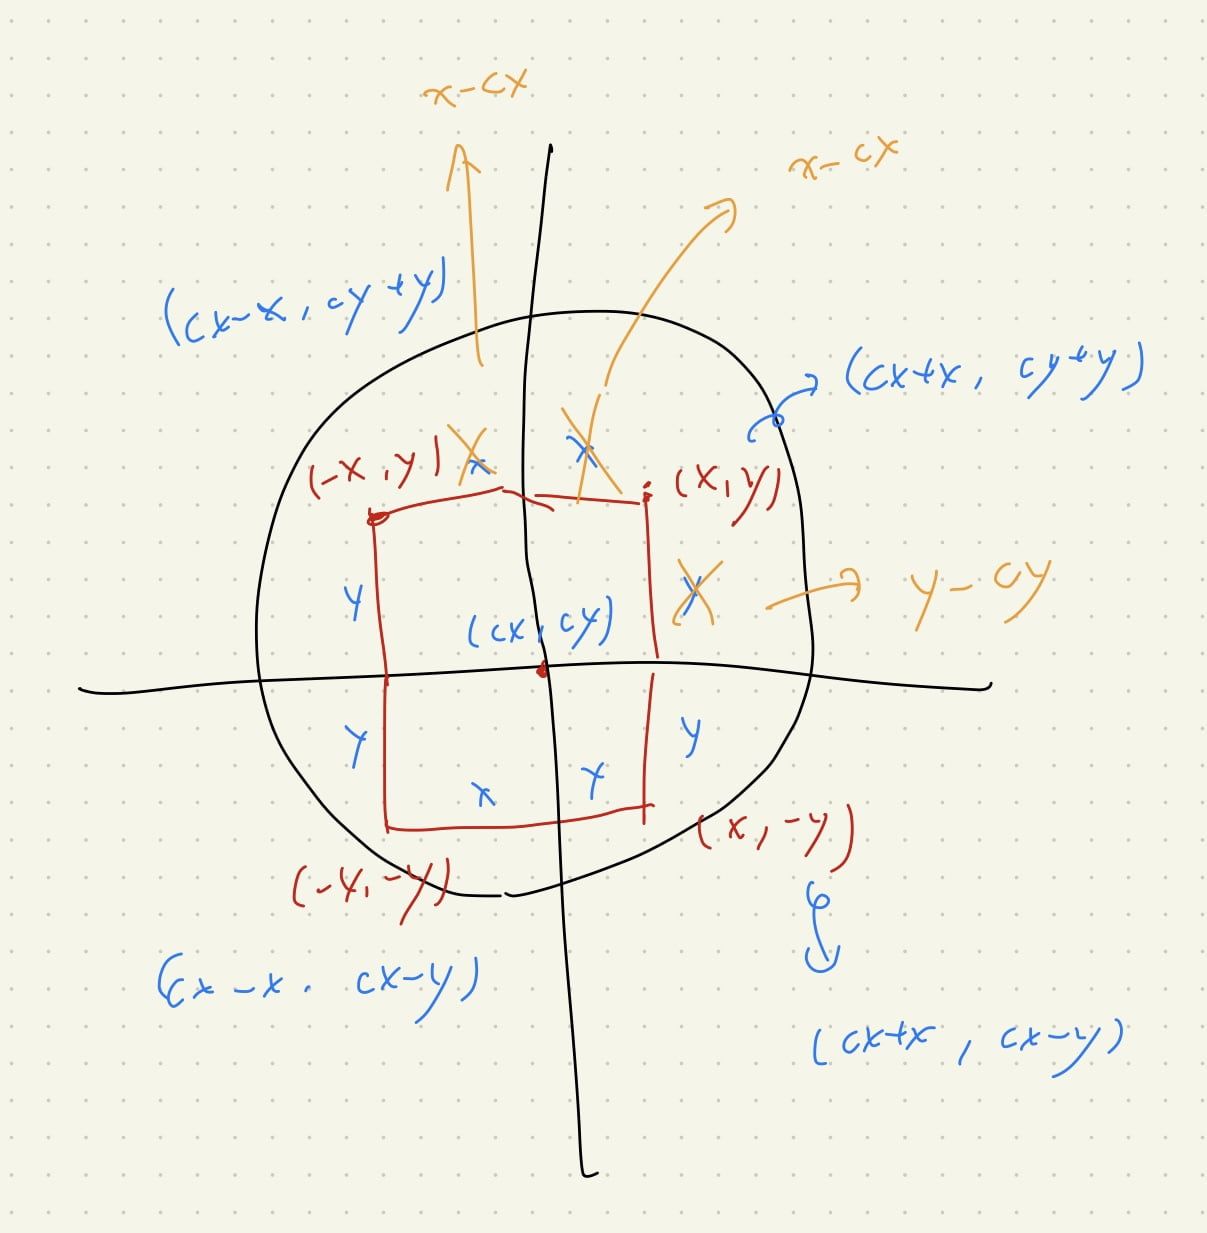 x-cx
x-cx
(cx-x, cy+y)
(cx+x, cy+y)
(-x, y)
x
x
(x, y)
y
y
y-cy
(cx, cy)
y
y
x
x
(x, -y)
(-x, -y)
(cx-x, cx-y)
(cx+x, cx-y)